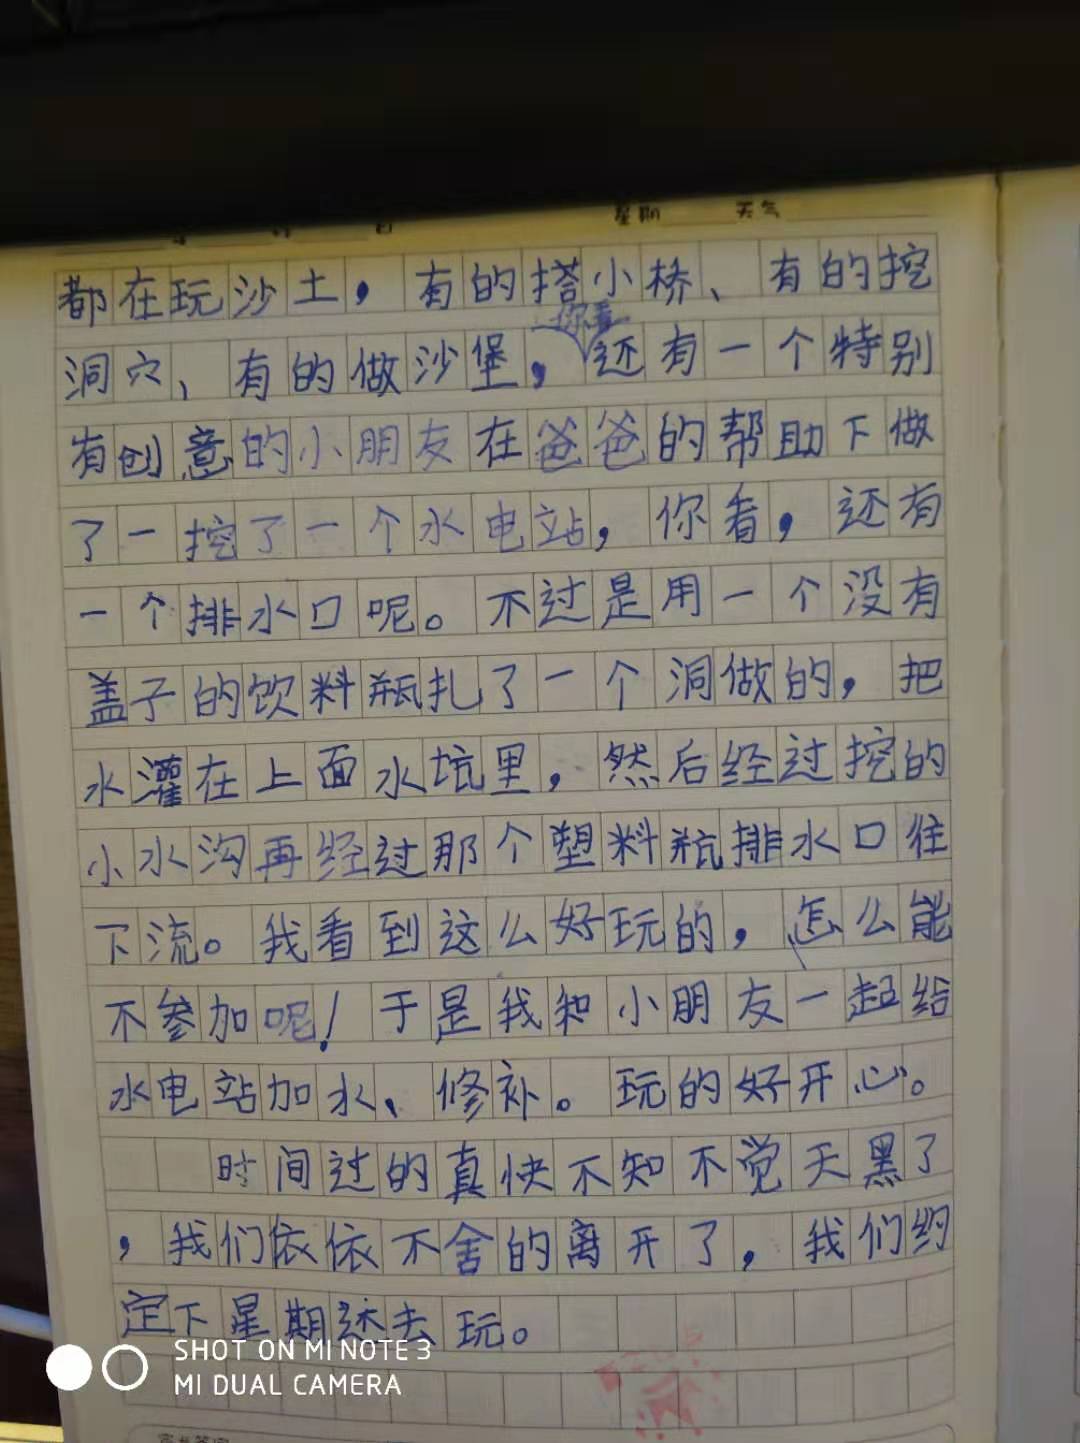 星期 天气
都在玩沙土，有的搭小桥、有的挖
你看
洞穴、有的做沙堡，还有一个特别
有创意的小朋友在爸爸的帮助下做
了一挖了一个水电站，你看，还有
一个排水口呢。不过是用一个没有
盖子的饮料瓶扎了一个洞做的，把
水灌在上面水坑里，然后经过挖的
小水沟再经过那个塑料瓶排水口往
下流。我看到这么好玩的，怎么能
不参加呢！于是我和小朋友一起给
水电站加水、修补。玩的好开心。
时间过的真快不知不觉天黑了
，我们依依不舍的离开了，我们约
定下星期还去玩。
SHOT ON MI NOTE 3
MI DUAL CAMERA